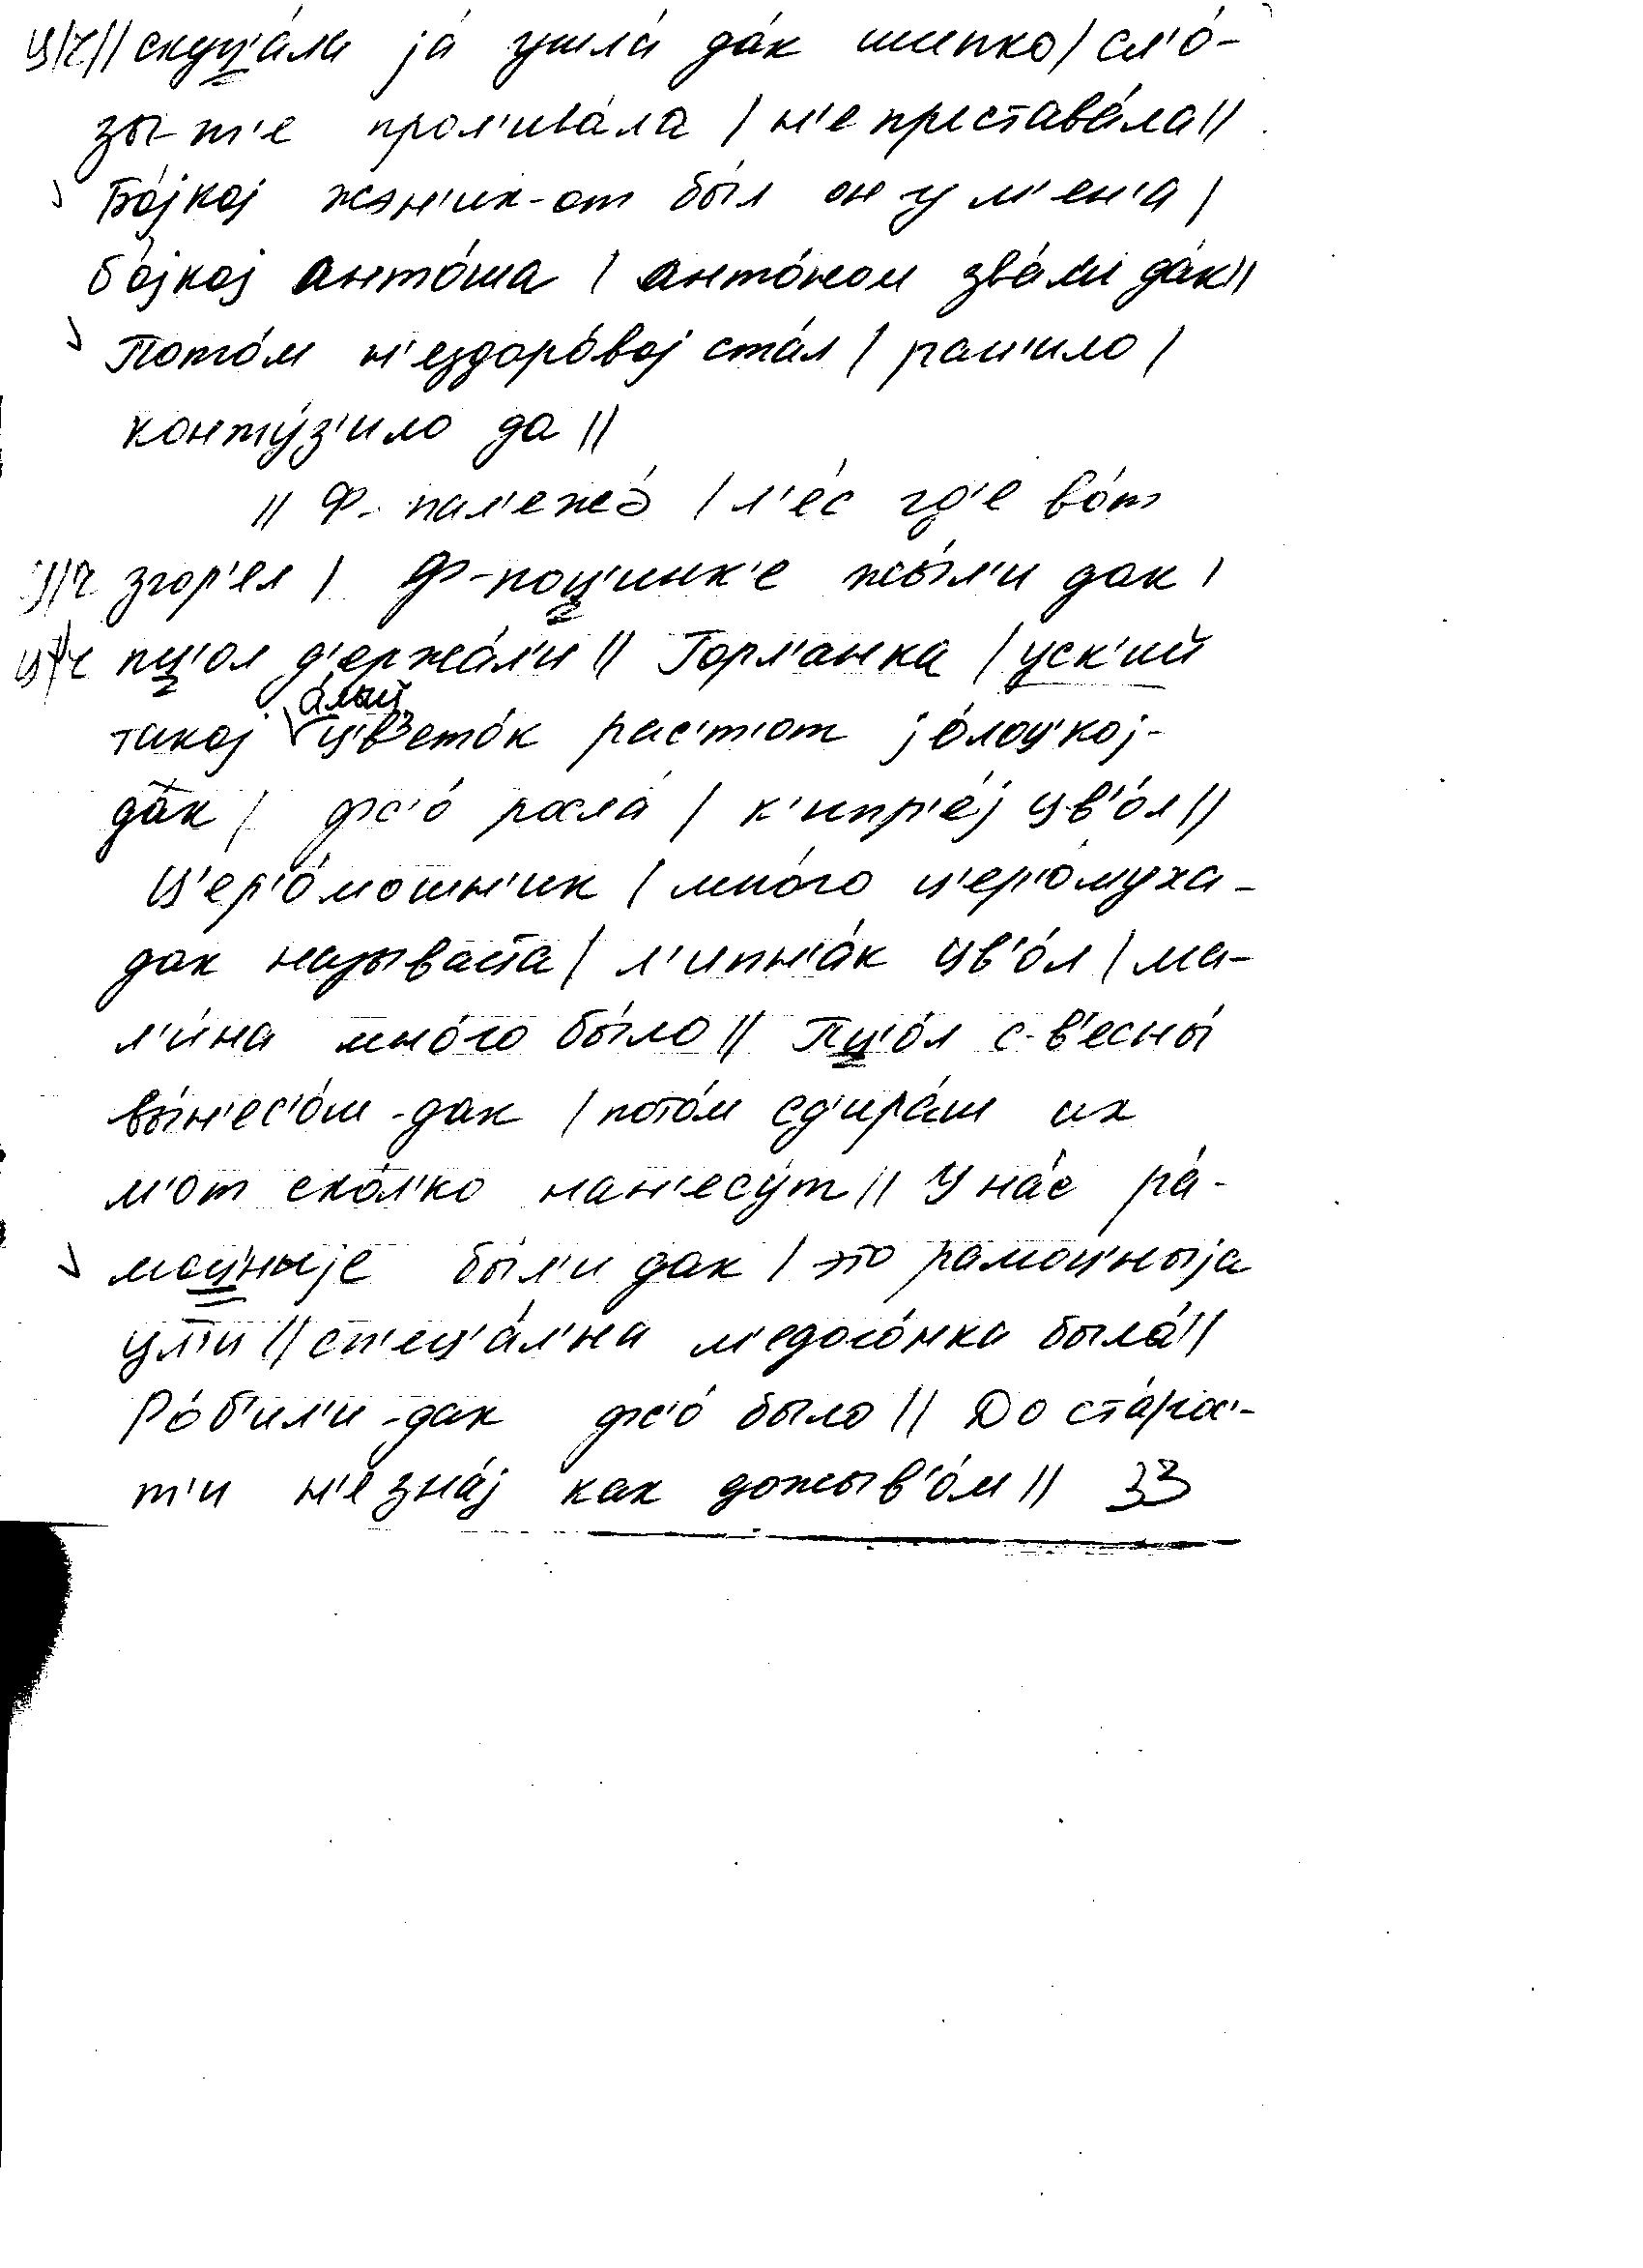 ц/ч// скуц'а́ла ја́ ушла́ да́к шипко / сл'о́-
зы-т'е прол'ива́ла / н'е преставе́ла //
Бо́јкој жэн'их-от бы́л он у м'ен'а /
бо́јкој анто́ша / анто́ном зва́ли да́к //
Пото́м н'ездоро́вој ста́л / ран'ило /
конту́з'ило да //
// Ф- пал'еже́ / л'е́с гд'е во́т
ц/ч згор'ел / Ф-поц'инк'е жы́л'и дак /
ц/ч пц'ол д'ержа́л'и // Горл'анка / уск'ий
а́лый
такој цв'ето́к рас'т'от јо́лоц'кој-
да́к / фс'о́ росла́ / к'ипр'е́ј цв'о́л //
Ц'ер'о́мошн'ик / мно́го ц'ер'о́муха-
дак называ́йта / л'ипн'а́к цв'о́л / ма-
л'и́на мно́го бы́ло // Пц'о́л с-в'есны́
вы́н'ес'о́ш-дак / пото́м сд'ира́ш их
м'от ско́л'ко нан'есу́т // У на́с ра́-
моц'ныје бы́л'и дак / это рамоц'ныја
ул'и // сп'ец'а́л'на м'едого́нка была́ //
Ро́б'ил'и-дак фс'о́ было // До ста́рос'-
т'и н'е зна́ј как дожыв'о́м // 33